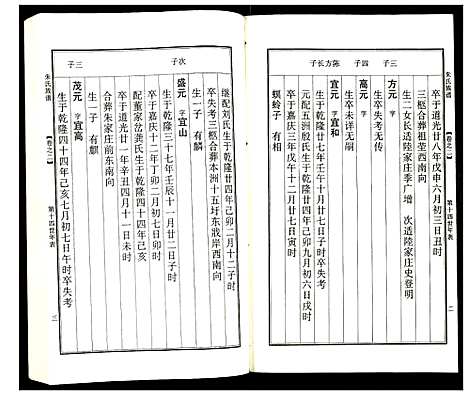 朱氏族谱
【卷之二】
第十四世年表
二
卒于道光廿八年戊申六月初三日丑时
三柩合葬祖茔西南向
生二女长适陸家庄季广增 次适陸家庄史登明
三子
方元 字
生卒失考无传
四子
高元 字
生卒未详无嗣
弥方长子
宜元 字 宜和
生于乾隆廿七年壬午十一月廿日子时卒失考
元配五洲殷氏生于乾隆廿四年己卯九月初六日戌时
卒于嘉庆三年戊午十二月廿七日寅时
螟蛉子 有相
继配刘氏生于乾隆廿四年己卯二月十二子时
卒失考三柩合葬本洲十五圩东戕岸西南向
生一子 有麟
次子
盛元 字 宜山
生于乾隆三十七年壬辰十一月廿二日子时
卒于嘉庆十二年丁卯二月初七日巳时
配董家岱龚氏生于乾隆四十年乙未
卒于道光廿一年辛丑四月十一日未时
合葬朱家庄前东南向
生一子 有麒
三子
茂元 字 宜高
生于乾隆四十四年己亥七月初七日午时卒失考
朱氏族谱
【卷之二】
第十四世年表
三